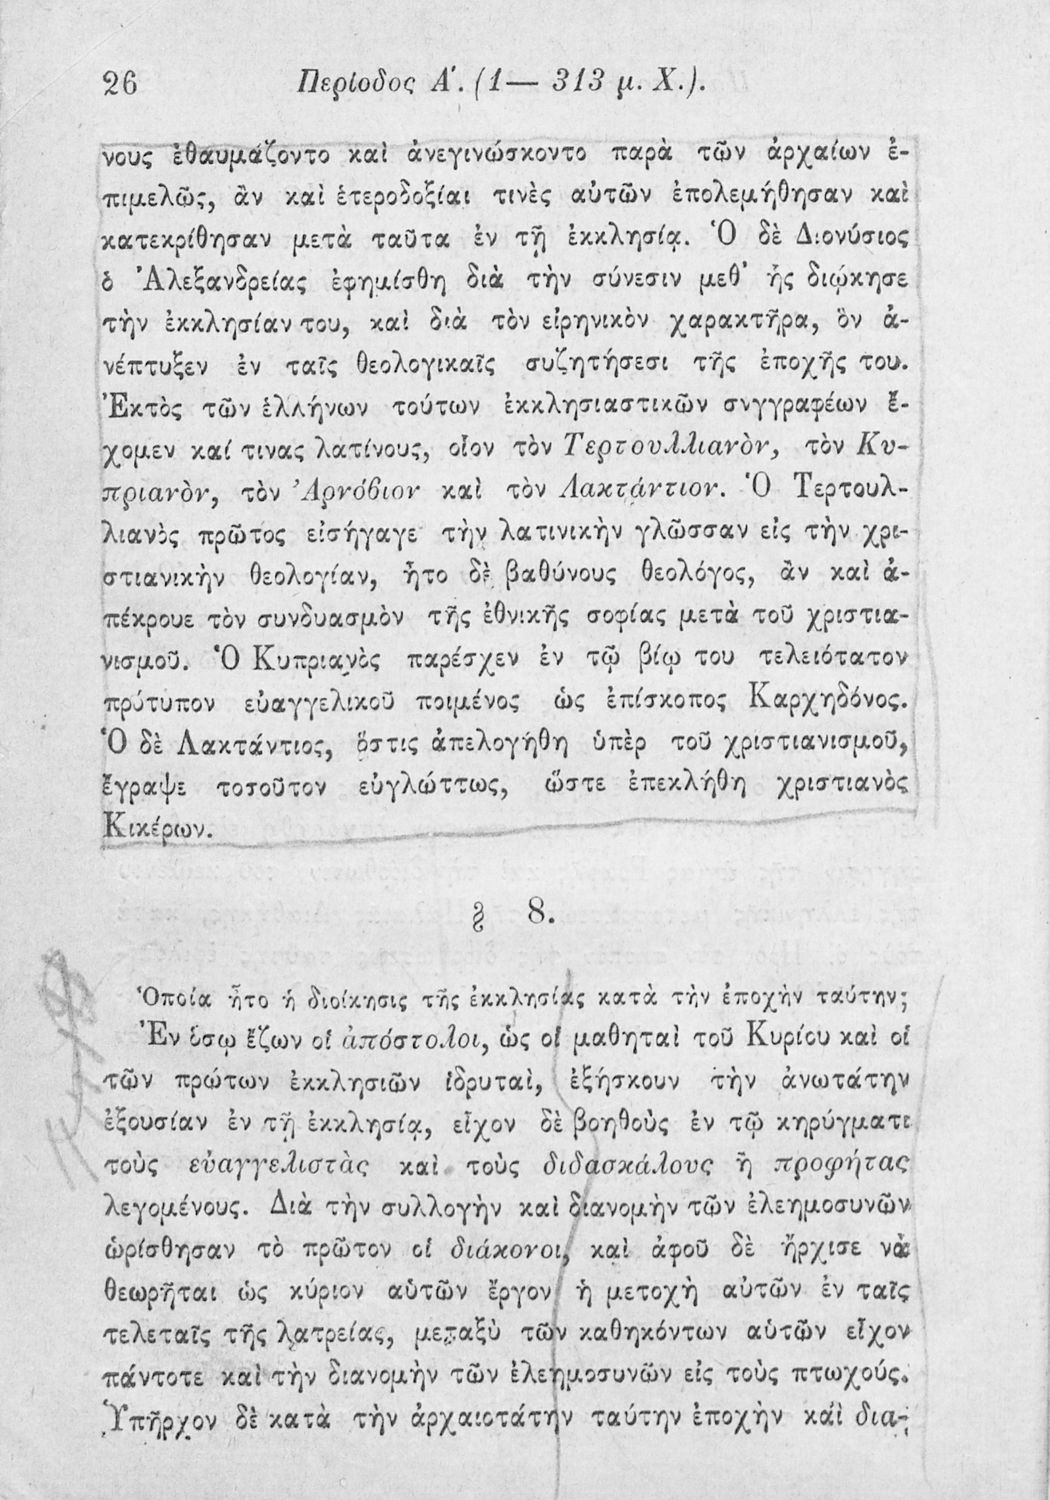 26 Περίοδος Α΄. (1— 313 μ. Χ.).
νους ἐθαυμάζοντο καὶ ἀνεγινώσκοντο παρὰ τῶν ἀρχαίων ἐ-
πιμελῶς, ἂν καὶ ἑτεροδοξίαι τινὲς αὐτῶν ἐπολεμήθησαν καὶ
κατεκρίθησαν μετὰ ταῦτα ἐν τῇ ἐκκλησίᾳ. Ὁ δὲ Διονύσιος
ὁ Ἀλεξανδρείας ἐφημίσθη διὰ τὴν σύνεσιν μεθ᾽ ἧς διῴκησε
τὴν ἐκκλησίαν του, καὶ διὰ τὸν εἰρηνικὸν χαρακτῆρα, ὃν ἀ-
νέπτυξεν ἐν ταῖς θεολογικαῖς συζητήσεσι τῆς ἐποχῆς του.
Ἐκτὸς τῶν ἑλλήνων τούτων ἐκκλησιαστικῶν συγγραφέων ἔ-
χομεν καί τινας λατίνους, οἷον τὸν Τερτουλλιανὸν, τὸν Κυ-
πριανὸν, τὸν Ἀρνόβιον καὶ τὸν Λακτάντιον. Ὁ Τερτουλ-
λιανὸς πρῶτος εἰσήγαγε τὴν λατινικὴν γλῶσσαν εἰς τὴν χρι-
στιανικὴν θεολογίαν, ἦτο δὲ βαθύνους θεολόγος, ἂν καὶ ἀ-
πέκρουε τὸν συνδυασμὸν τῆς ἐθνικῆς σοφίας μετὰ τοῦ χριστια-
νισμοῦ. Ὁ Κυπριανὸς παρέσχεν ἐν τῷ βίῳ του τελειότατον
πρότυπον εὐαγγελικοῦ ποιμένος ὡς ἐπίσκοπος Καρχηδόνος.
Ὁ δὲ Λακτάντιος, ὅστις ἀπελογήθη ὑπὲρ τοῦ χριστιανισμοῦ,
ἔγραψε τοσοῦτον εὐγλώττως, ὥστε ἐπεκλήθη χριστιανὸς
Κικέρων.
§ 8.
Ὁποία ἦτο ἡ διοίκησις τῆς ἐκκλησίας κατὰ τὴν ἐποχὴν ταύτην;
Ἐν ὅσῳ ἔζων οἱ ἀπόστολοι, ὡς οἱ μαθηταὶ τοῦ Κυρίου καὶ οἱ
τῶν πρώτων ἐκκλησιῶν ἱδρυταὶ, ἐξήσκουν τὴν ἀνωτάτην
ἐξουσίαν ἐν τῇ ἐκκλησίᾳ, εἶχον δὲ βοηθοὺς ἐν τῷ κηρύγματι
τοὺς εὐαγγελιστὰς καὶ τοὺς διδασκάλους ἢ προφήτας
λεγομένους. Διὰ τὴν συλλογὴν καὶ διανομὴν τῶν ἐλεημοσυνῶν
ὡρίσθησαν τὸ πρῶτον οἱ διάκονοι, καὶ ἀφοῦ δὲ ἤρχισε νὰ
θεωρῆται ὡς κύριον αὐτῶν ἔργον ἡ μετοχὴ αὐτῶν ἐν ταῖς
τελεταῖς τῆς λατρείας, μεταξὺ τῶν καθηκόντων αὑτῶν εἶχον
πάντοτε καὶ τὴν διανομὴν τῶν ἐλεημοσυνῶν εἰς τοὺς πτωχούς.
Ὑπῆρχον δὲ κατὰ τὴν ἀρχαιοτάτην ταύτην ἐποχὴν καὶ δια-